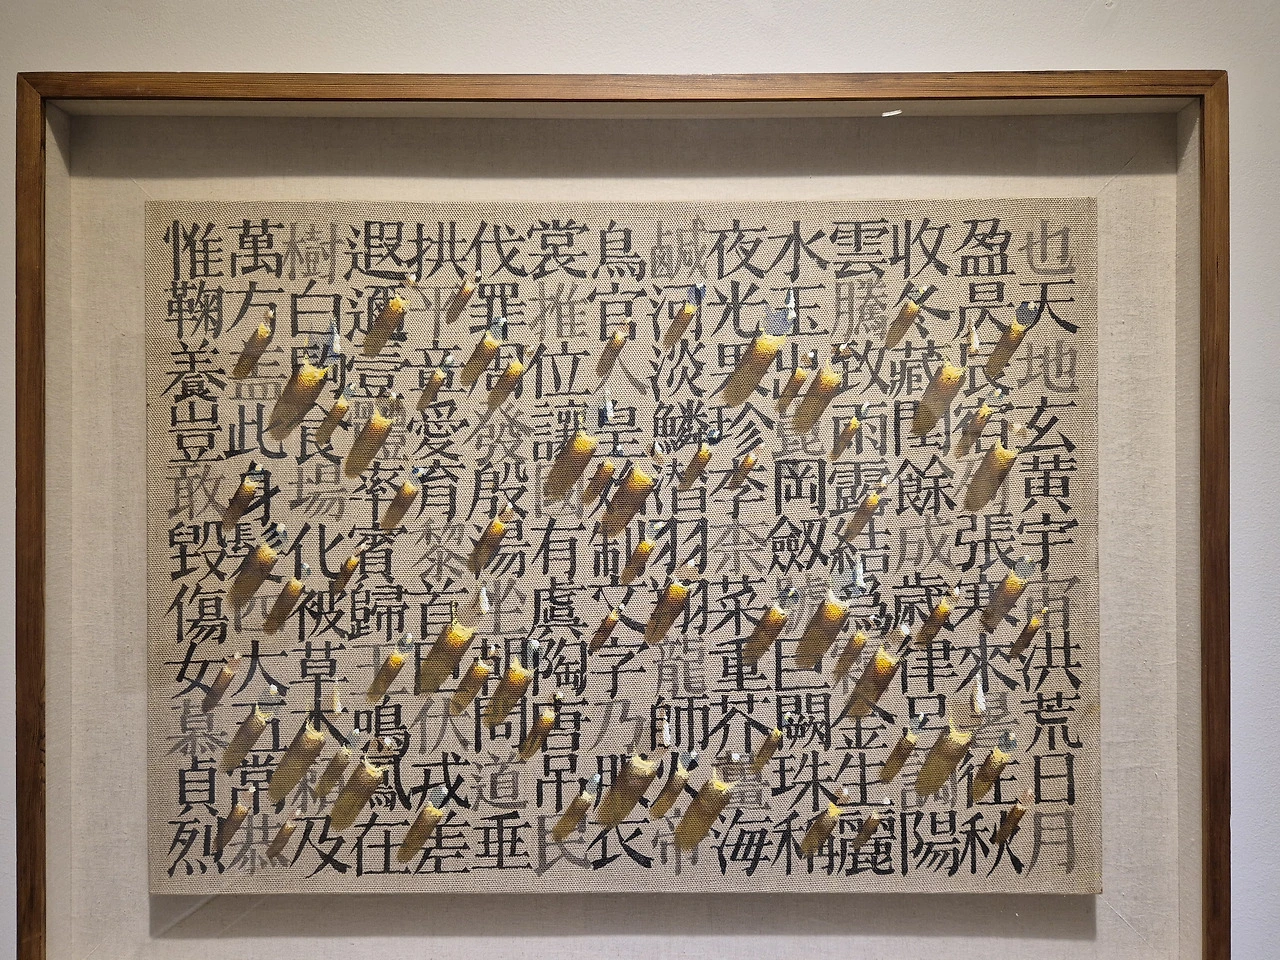 也天地玄黃宇宙洪荒日月
盈昃辰宿列張寒來暑往秋
收冬藏閏餘成歲律呂調陽
雲騰致雨露結爲霜金生麗
水玉出崑岡劒號巨闕珠稱
夜光果珍李柰菜重芥薑海
鹹河淡鱗潛羽翔龍師火帝
鳥官人皇始制文字乃服衣
裳推位讓國有虞陶唐吊民
伐罪周發殷湯坐朝問道垂
拱平章愛育黎首臣伏戎差
遐邇壹體率賓歸王鳴鳳在
樹白駒食場化被草木賴及
萬方蓋此身髮四大五常恭
惟鞠養豈敢毀傷女慕貞烈